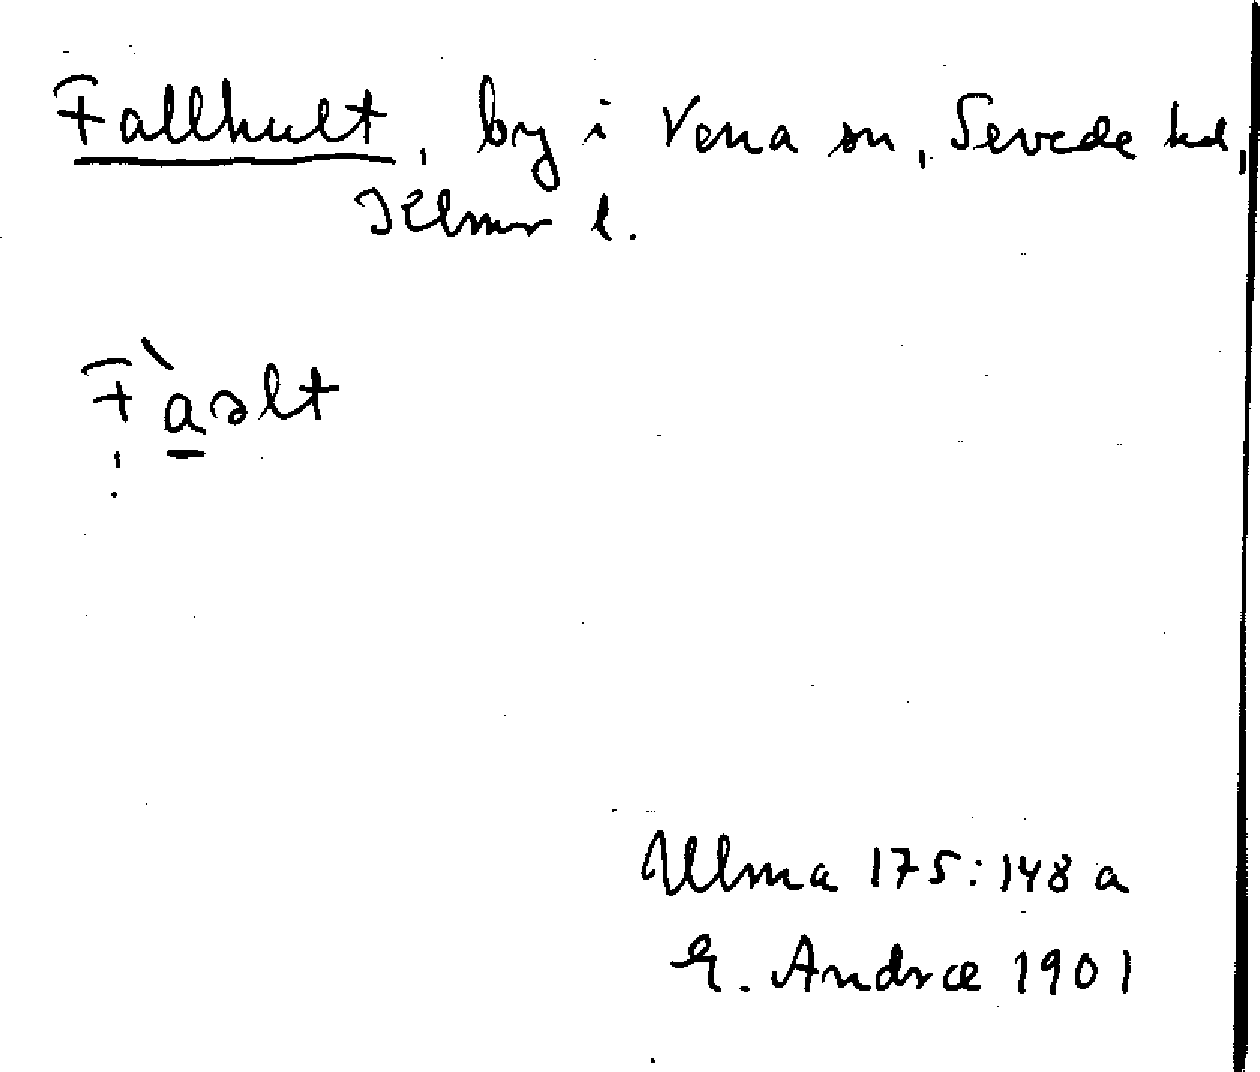 Fallhult, by i Vena sn, Sevede hd,
Klmr l.
F`aəlt
Ulma 175:148 a
G. Andræ 1901